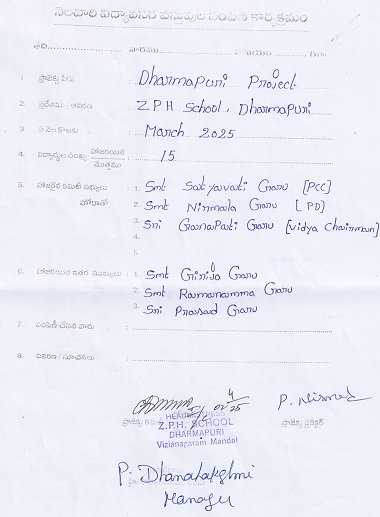 నెలవారీ విద్యావసర వస్తువుల పంపిణీ కార్యక్రమం
1. ప్రాజెక్టు పేరు : Dharmapuri Project
2. ప్రదేశము / ఆవరణ : ZPH School, Dharmapuri
3. : March 2025
4. విద్యార్థుల సంఖ్య హాజరయిన / మొత్తము : 15
5. హాజరైన కమిటీ సభ్యులు : 1. Smt Satyavati Garu [PCC]
హోదాతో 2. Smt Nirmala Garu [PD]
3. Sri GanaPati Garu [Vidya Chairman]
4.
5
6. హాజరయిన ఇతర ముఖ్యులు : 1. Smt Girija Garu
2. Smt Ramanamma Garu
3. Sri Prasad Garu
7. పంపిణీ చేసిన వారు :
8. వివరణ / సూచనలు :
P. Nirmal
HEADMISTRESS
Z.P.H. SCHOOL
DHARMAPURI
Vizianagaram Mandal
ప్రాజెక్టు డైరెక్టర్
P. Dhanalakshmi
Manager